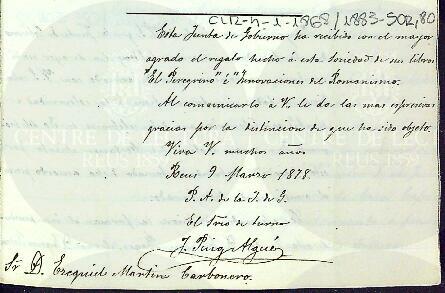 CLIZ-h-1-1868/1883-SOR,80
Esta Junta de Gobierno ha recibido con el mayor
agrado el regalo hecho á esta Sociedad de sus libros
"El Peregrino" é "Innovaciones del Romanismo.
Al comunicarlo á V. le da las mas espresivas
gracias por la distincion de que ha sido objeto.
Viva V. muchos años
Reus 9 Marzo 1878.
P. A. de la J. de G.
El Srio de turno
J. Puig Algué
Sr. D. Ezequiel Martin Carbonero.
CENTRE DE
REUS